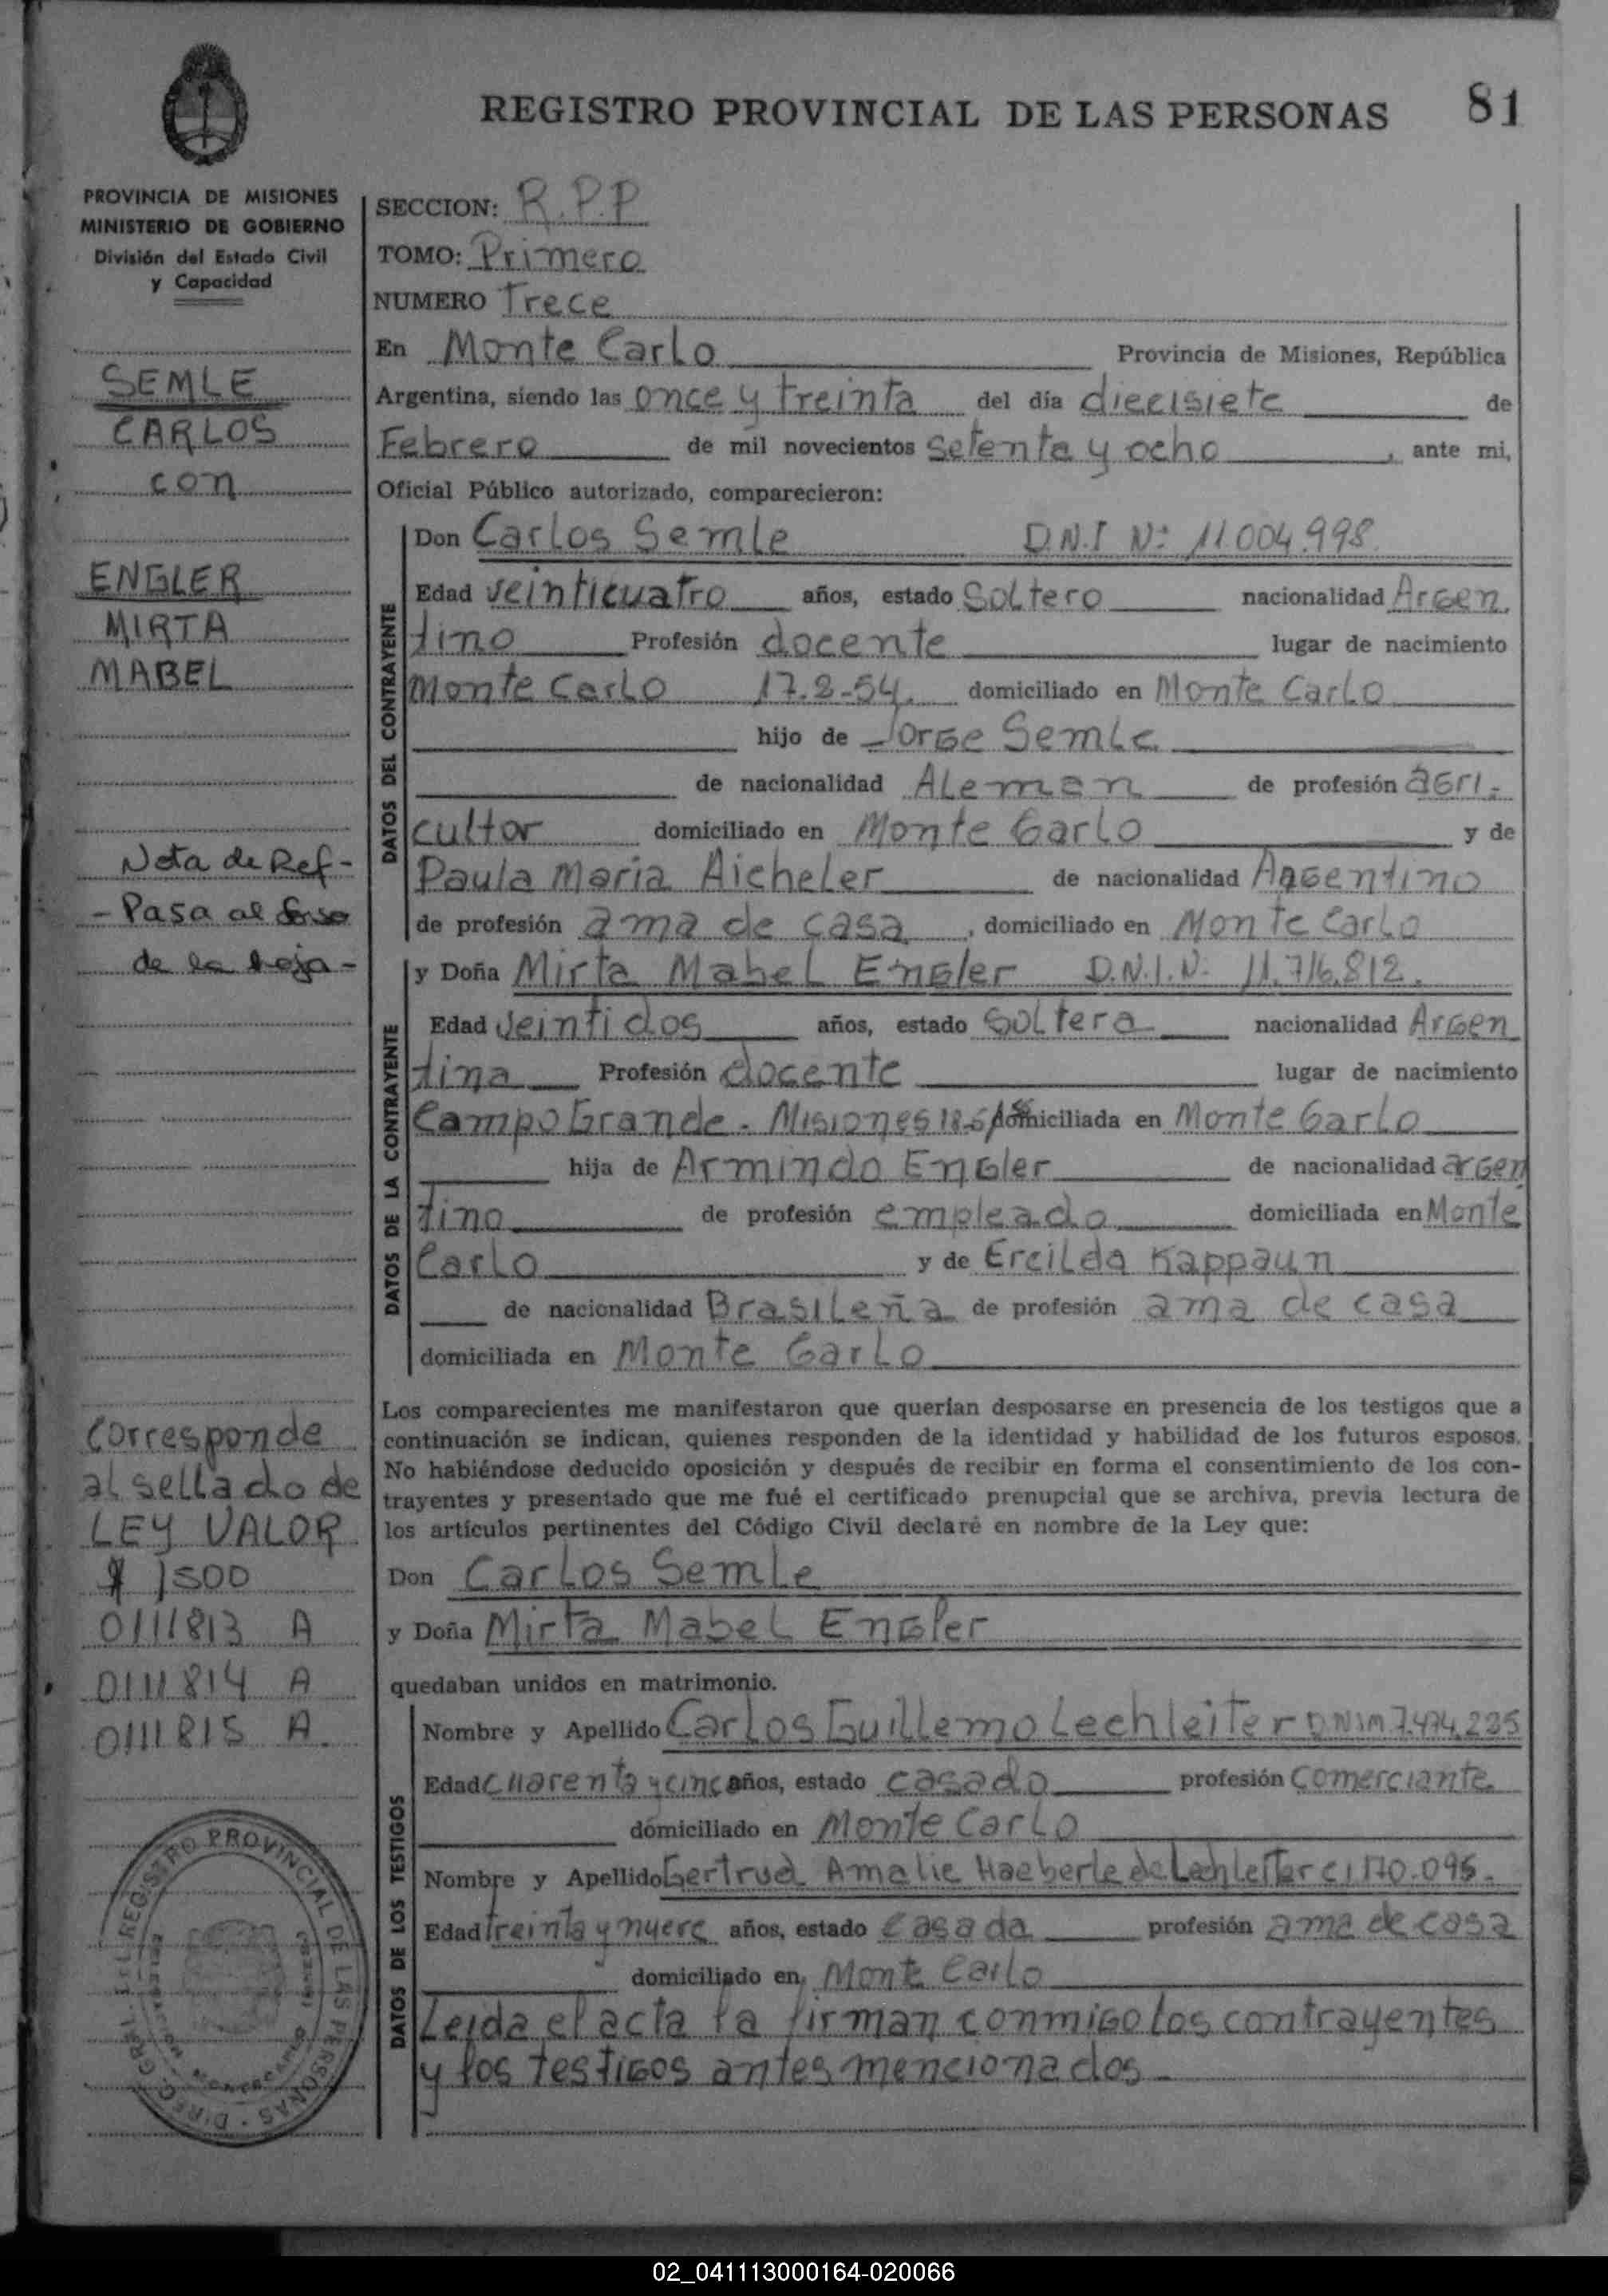 REGISTRO PROVINCIAL DE LAS PERSONAS 81
PROVINCIA DE MISIONES
MINISTERIO DE GOBIERNO
División del Estado Civil
y Capacidad
SEMLE
CARLOS
con
ENGLER
MIRTA
MABEL
Nota de Ref-
- Pasa al
de la hoja -
Corresponde
al sellado de
LEY VALOR
$ 1500
0111813 A
0111814 A
0111815 A.
REGISTRO PROVINCIAL DE LAS PERSONAS
SECCION: R.P.P
TOMO: Primero
NUMERO Trece
En Monte Carlo Provincia de Misiones, República
Argentina, siendo las once y treinta del día diecisiete de
Febrero de mil novecientos setenta y ocho, ante mi,
Oficial Público autorizado, comparecieron:
DATOS DEL CONTRAYENTE
Don Carlos Semle D.N.I Nº 11.004.998.
Edad veinticuatro años, estado Soltero nacionalidad Argen
tino Profesión docente lugar de nacimiento
Monte Carlo 17.2-54. domiciliado en Monte Carlo
hijo de Jorge Semle
de nacionalidad Aleman de profesión agri-
cultor domiciliado en Monte Carlo y de
Paula Maria Aicheler de nacionalidad Argentino
de profesión ama de casa, domiciliado en Monte Carlo
DATOS DE LA CONTRAYENTE
y Doña Mirta Mabel Engler D.N.I.N- 11.716.812.
Edad veintidos años, estado Soltera nacionalidad Argen
tina Profesión docente lugar de nacimiento
Campo Grande - Misiones domiciliada en Monte Carlo
hija de Armindo Engler de nacionalidad argen
tino de profesión empleado domiciliada en Monte
Carlo y de Ercilda Kappaun
de nacionalidad Brasileña de profesión ama de casa
domiciliada en Monte Carlo
Los comparecientes me manifestaron que querían desposarse en presencia de los testigos que a
continuación se indican, quienes responden de la identidad y habilidad de los futuros esposos.
No habiéndose deducido oposición y después de recibir en forma el consentimiento de los con-
trayentes y presentado que me fué el certificado prenupcial que se archiva, previa lectura de
los artículos pertinentes del Código Civil declaré en nombre de la Ley que:
Don Carlos Semle
y Doña Mirta Mabel Engler
quedaban unidos en matrimonio.
DATOS DE LOS TESTIGOS
Nombre y Apellido Carlos Guillemo Lechleiter D.N.I.M 7.474.225
Edad cuarenta y cinc años, estado casado profesión Comerciante
domiciliado en Monte Carlo
Nombre y Apellido Gertrud Amalie Haeberle de Lechleiter C.I 170.096.
Edad treinta y nueve años, estado casada profesión ama de casa
domiciliado en Monte Carlo
Leida el acta la firman conmigo los contrayentes
y los testigos antes mencionados
02_041113000164-020066